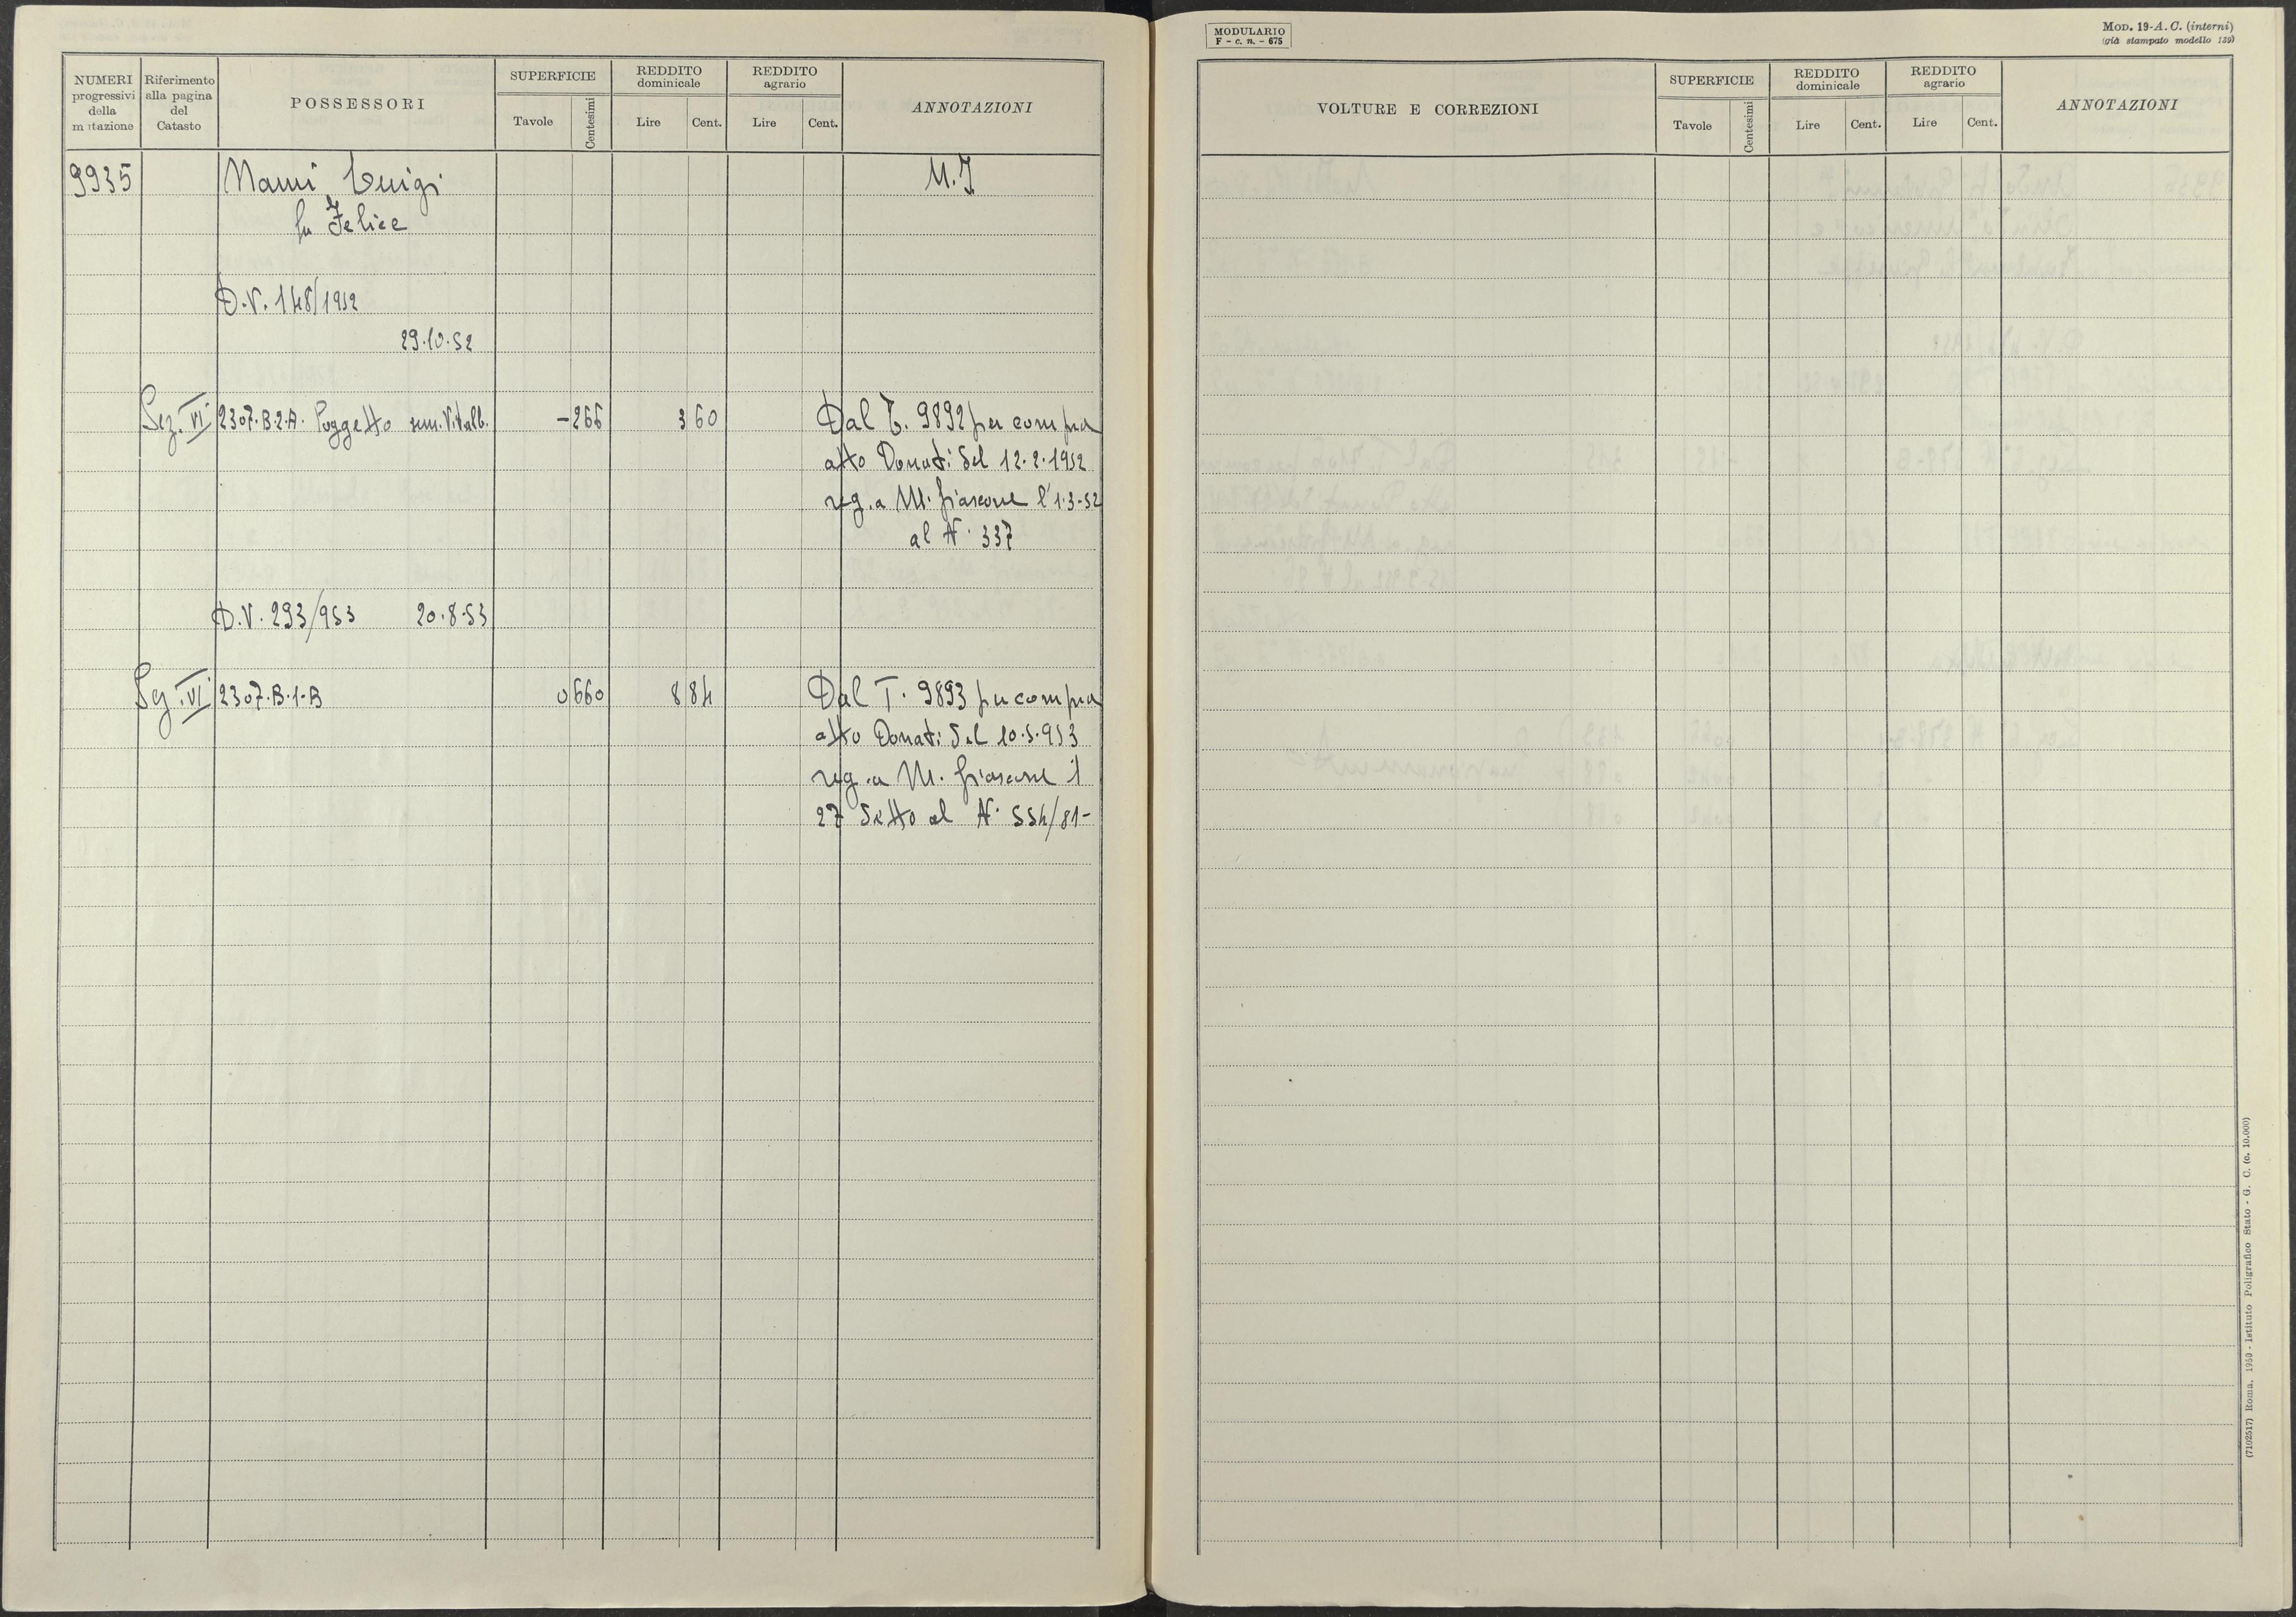 NUMERI progressivi della mutazione | Riferimento alla pagina del Catasto | POSSESSORI | SUPERFICIE Tavole Centesimi | REDDITO dominicale Lire Cent. | REDDITO agrario Lire Cent. | ANNOTAZIONI
9935 Nanni Luigi M.I
fu Felice
D.V. 148/1952
29.10.52
Sez. VI 2307.B.2.A. Poggetto sem. Vit. alb. -266 3 60 Dal T. 9892 per compra
atto Donati del 12.2.1952
reg. a M. Fiascone l'1-3-52
al N. 337
D.V. 293/953 20.8.53
Sez. VI 2307.B.1-B 0660 8 84 Dal T. 9893 per compra
atto Donati del 10.5.953
reg. a M. Fiascone il
27 detto al N. 554/81-
MODULARIO
F - c. n. - 675
MOD. 19-A. C. (interni)
(già stampato modello 139)
VOLTURE E CORREZIONI | SUPERFICIE Tavole Centesimi | REDDITO dominicale Lire Cent. | REDDITO agrario Lire Cent. | ANNOTAZIONI
(7102517) Roma, 1950 - Istituto Poligrafico Stato - G. C. (c. 10.000)